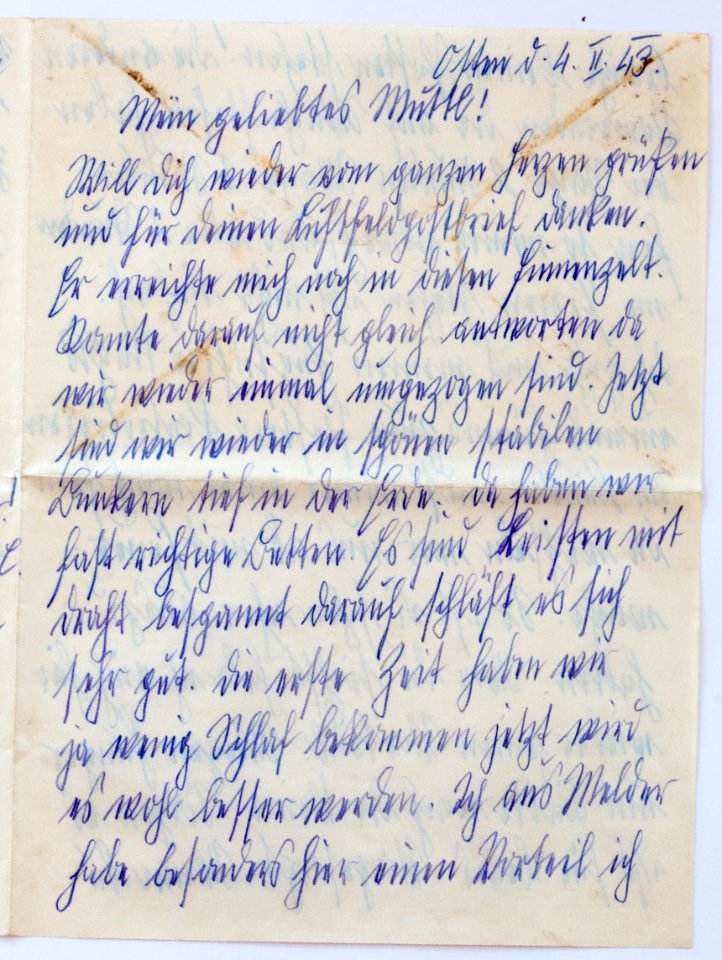 Osten d. 4. II. 43.
Mein geliebtes Muttl!
Will dich wieder vom ganzen Herzen grüßen
und für deinen Luftfeldpostbrief danken.
Er erreichte mich noch in diesen Finnenzelt.
Konnte darauf nicht gleich antworten da
wir wieder einmal umgezogen sind. Jetzt
sind wir wieder in schönen stabilen
Bunkern tief in der Erde. Da haben wir
fast richtige Betten. Es sind Leisten mit
Draht bespannt darauf schläft es sich
sehr gut. Die erste Zeit haben wir
ja wenig Schlaf bekommen jetzt wird
es wohl besser werden. Ich als Melder
habe besonders hier einen Vorteil ich